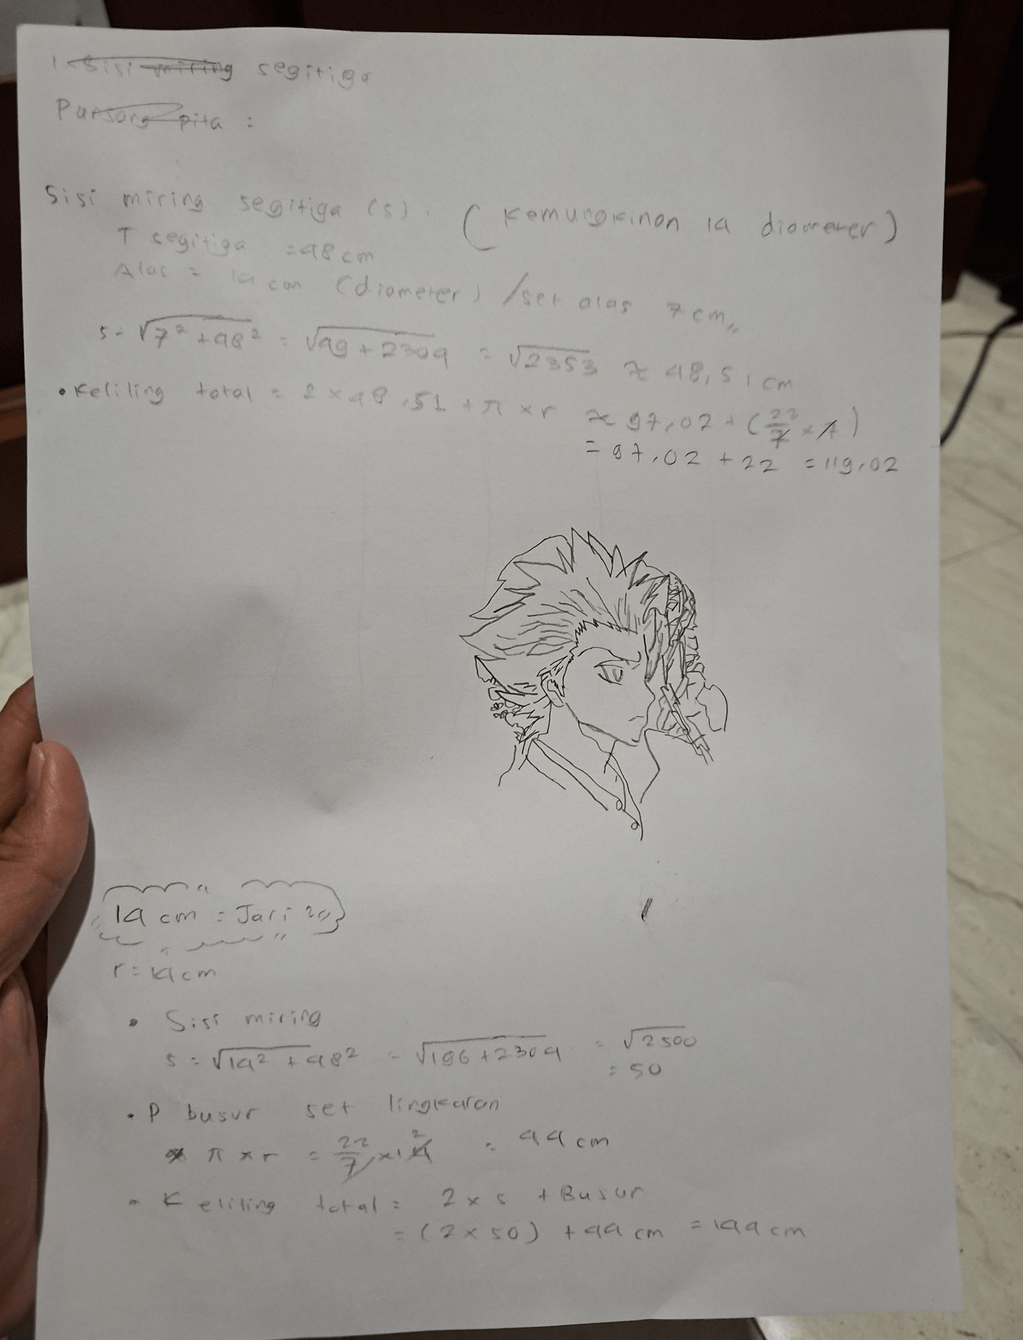 1. Sisi miring segitiga
Panjang pita :
Sisi miring segitiga (s). (Kemungkinan 14 diameter)
T segitiga = 48 cm
Alas = 14 cm (diameter) / set alas 7 cm,,
s = √7² + 48² = √49 + 2304 = √2353 ≈ 48,51 cm
• Keliling total = 2 x 48,51 + π x r ≈ 97,02 + (22/7 x 7)
= 97,02 + 22 = 119,02
14 cm = Jari 2
r = 14 cm
• Sisi miring
s = √14² + 48² = √196 + 2304 = √2500
= 50
• P busur set lingkaran
π x r = 22/7 x 14 2 = 44 cm
• Keliling total = 2 x s + Busur
= (2 x 50) + 44 cm = 144 cm